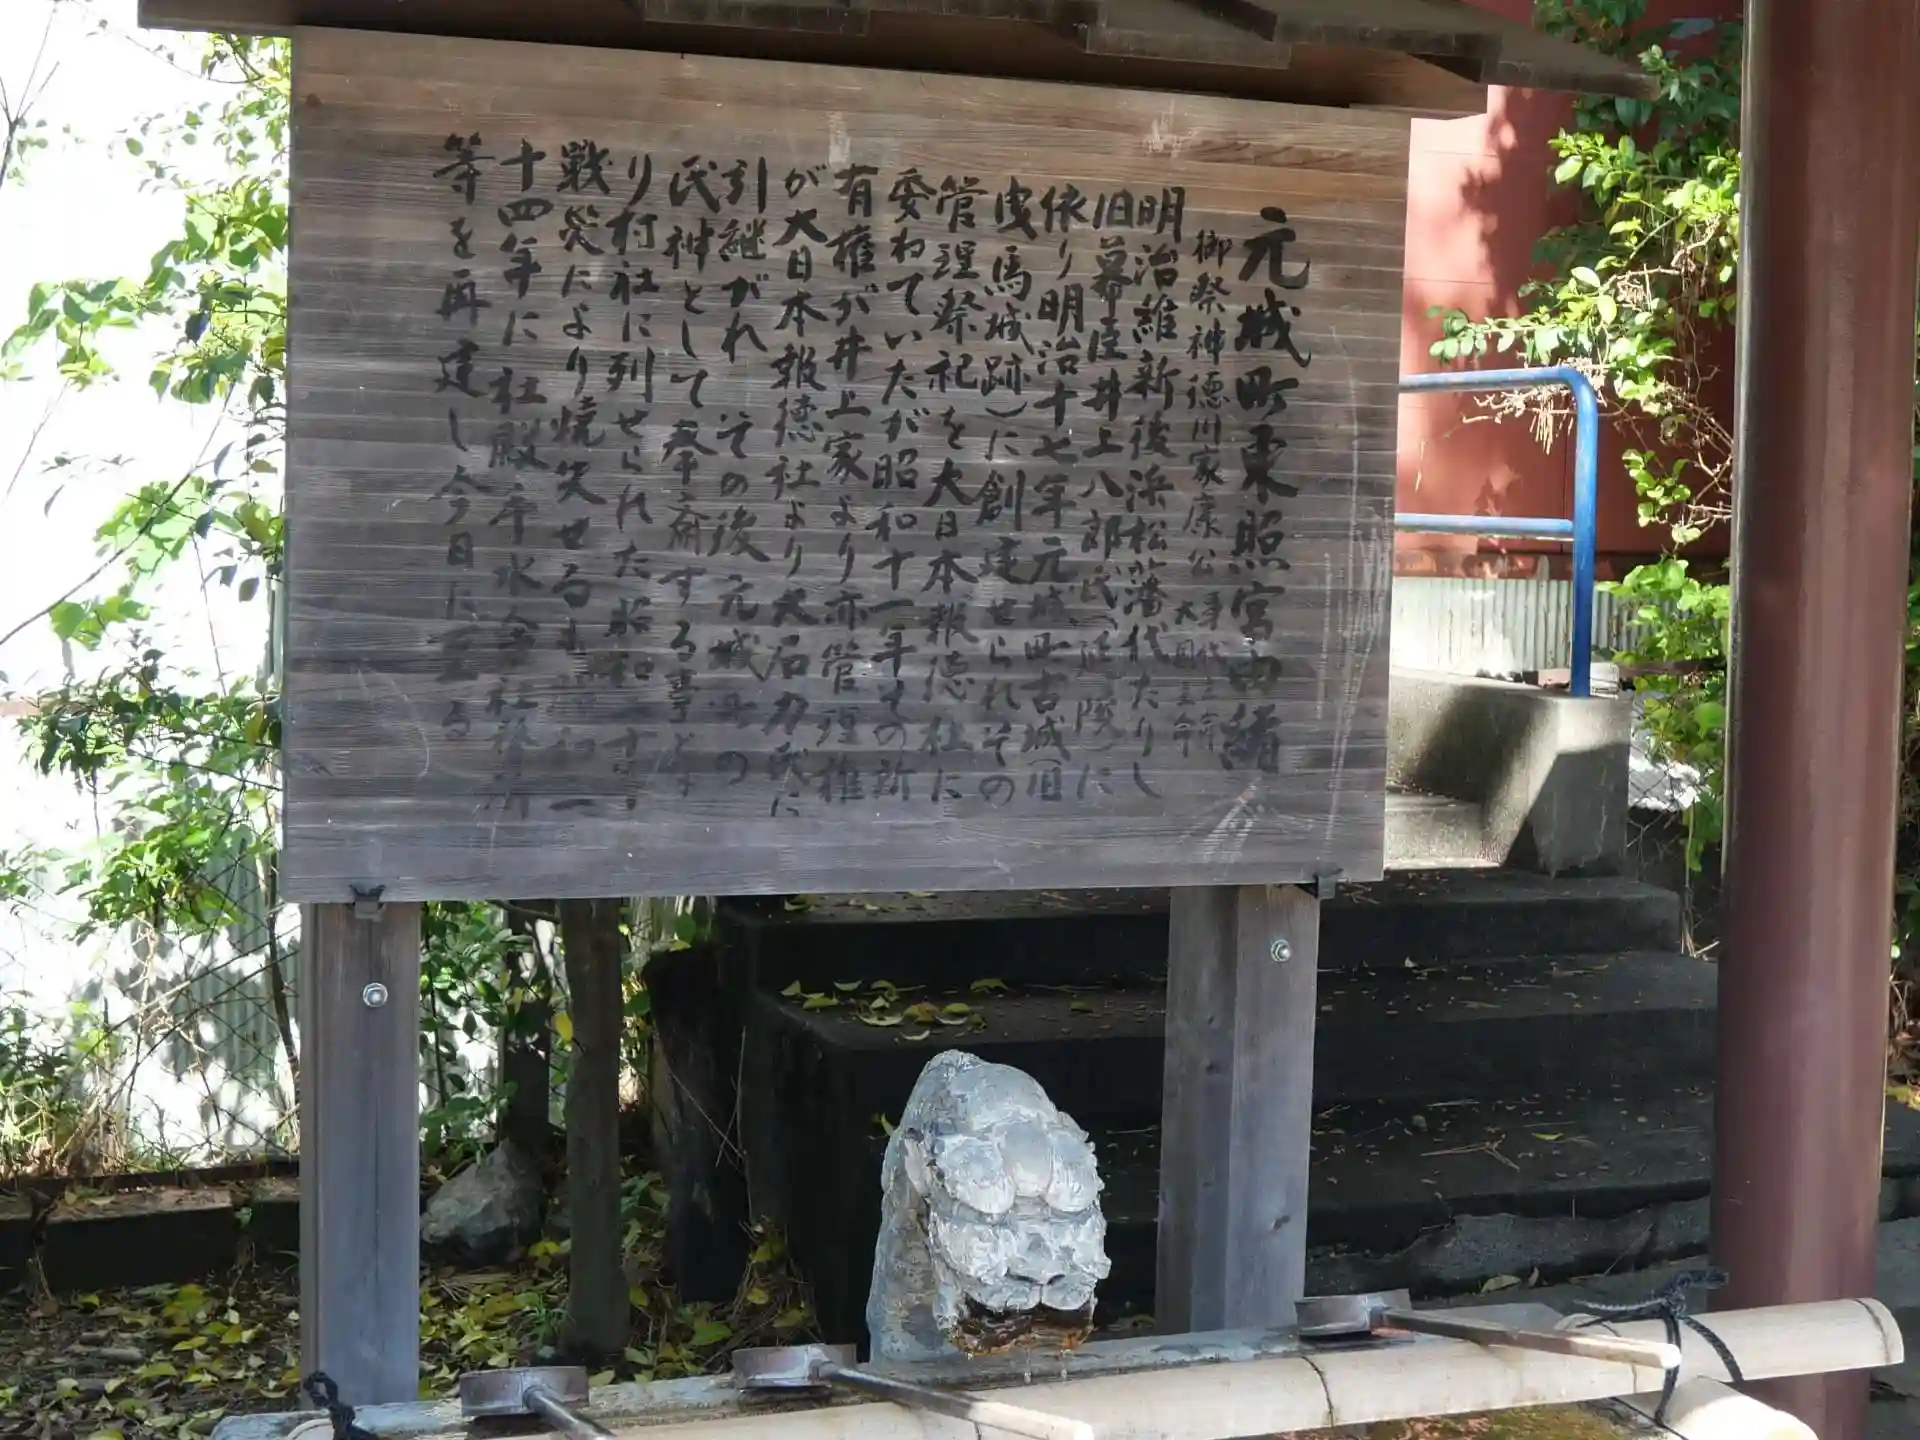 元城町東照宮由緒
御祭神徳川家康公 事代主命 大国主命
明治維新後浜松藩代たりし
旧幕臣井上八郎氏(延陵)に
依り明治十七年元城町古城(旧
曳馬城跡)に創建せられその
管理祭祀を大日本報徳社に
委ねていたが昭和十一年その所
有権が井上家より亦管理権
が大日本報徳社より大石力氏に
引継がれ その後元城町の
氏神として奉斎する事とな
り村社に列せられた昭和二十年
戦災により焼失せるも昭和三
十四年に社殿手水舎社務所
等を再建し今日に至る